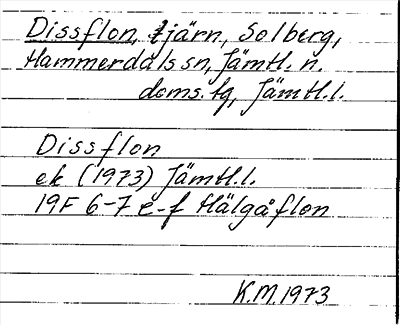 Dissflon, tjärn, Solberg,
Hammerdals sn, Jämtl. n.
doms. tg, Jämtl.l.
Dissflon
ek (1973) Jämtl.l.
19F 6-7 e-f Hälgåflon
K.M. 1973